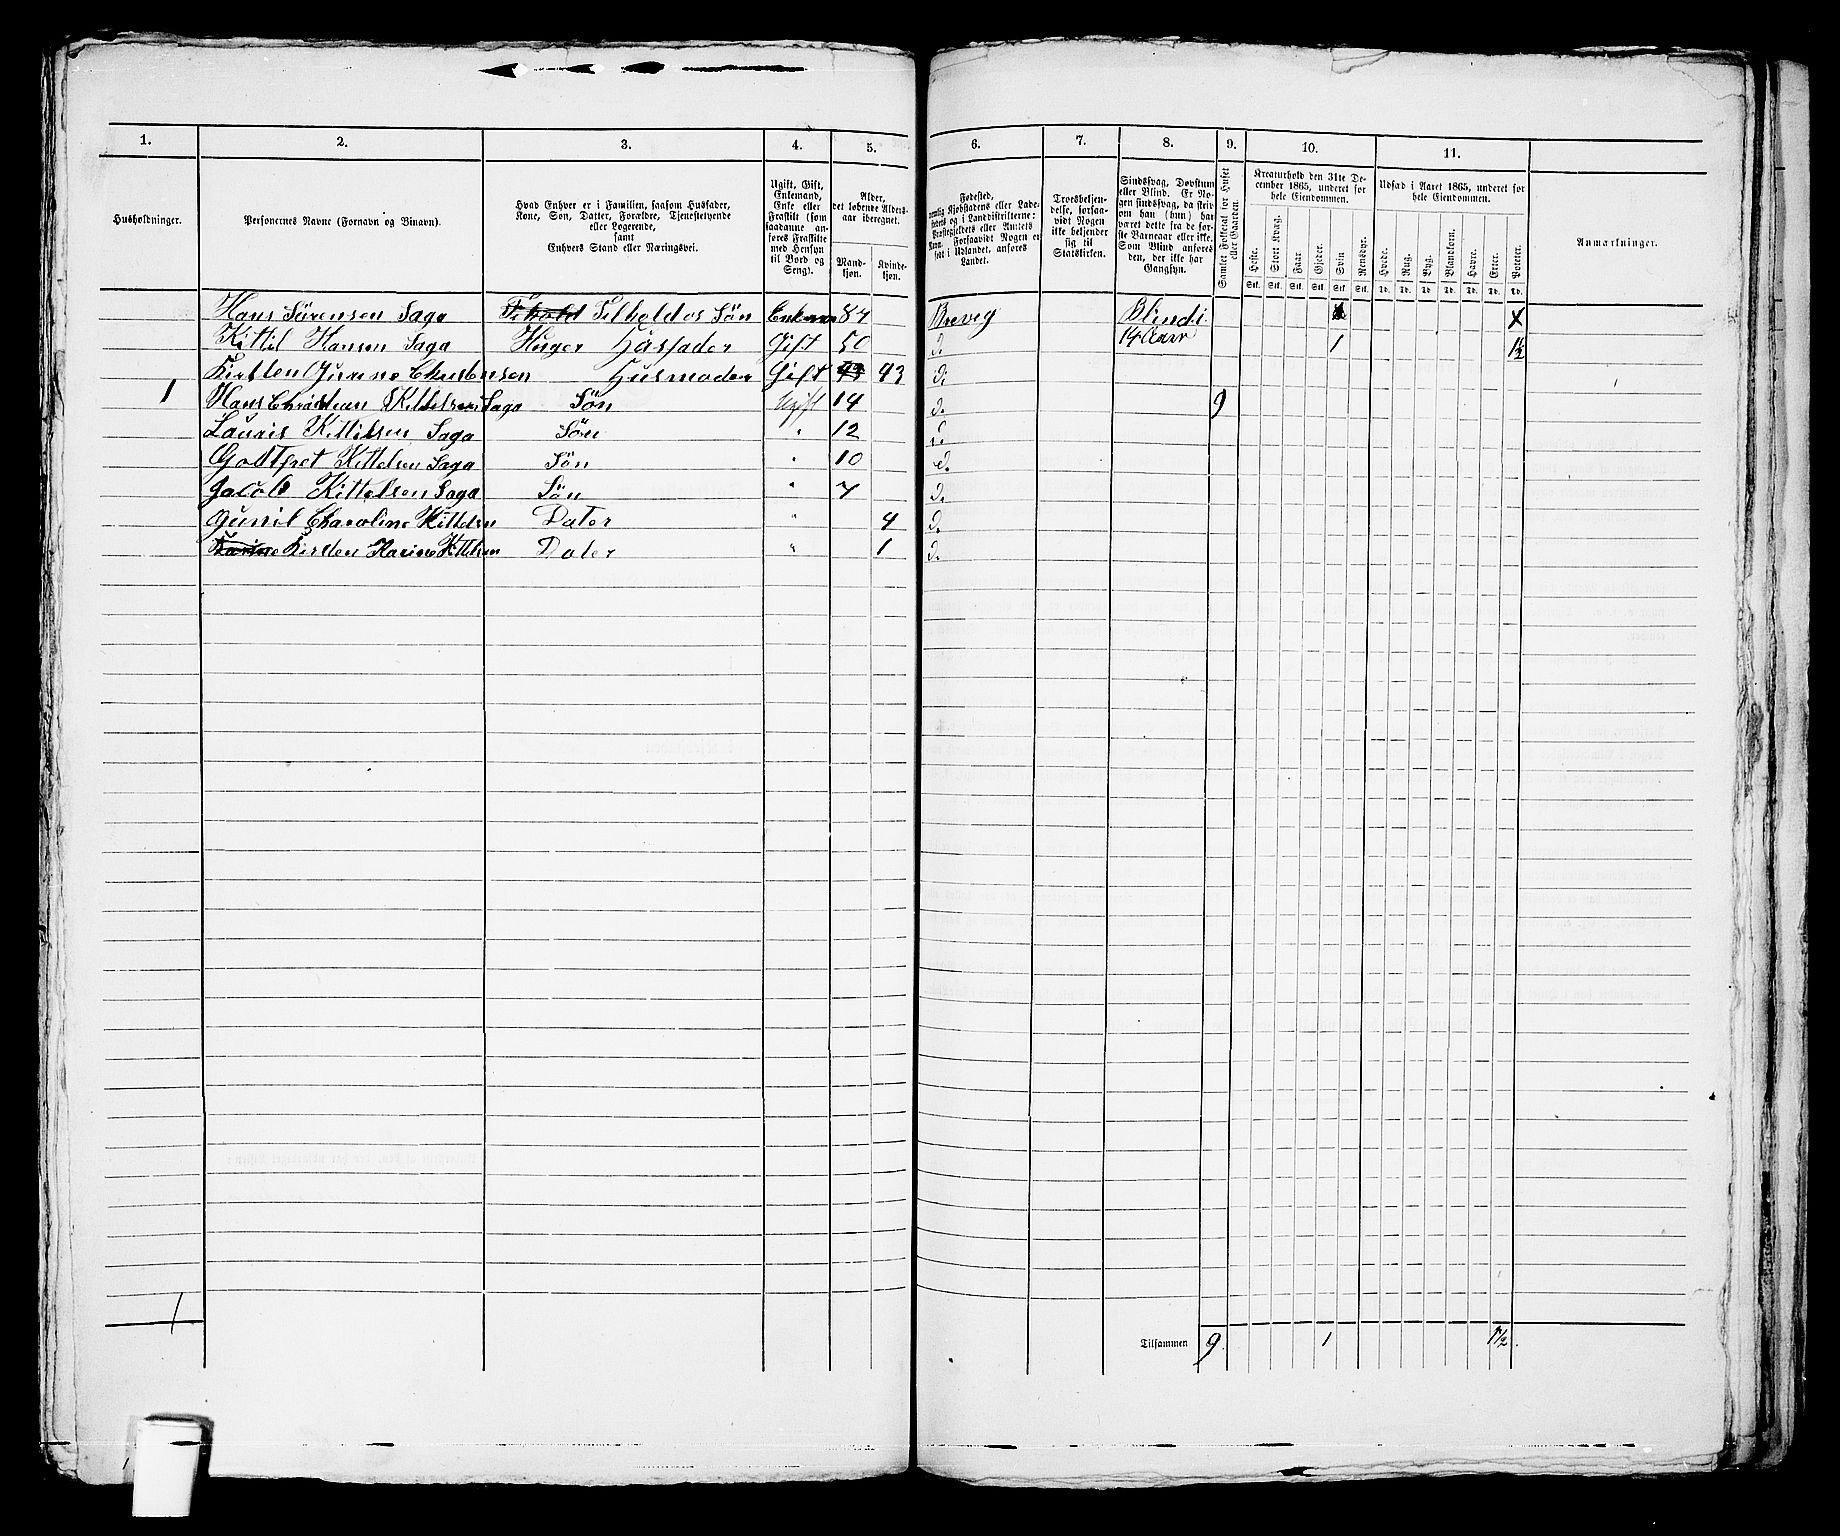 1. 2. 3. 4. 5. 6. 7. 8. 9. 10. 11.
Husholdninger.
Personernes Navne (Fornavn og Binavn).
Hvad Enhver er i Familien, saasom Husfader,
Kone, Søn, Datter, Forældre, Tjenestetyende
eller Logerende,
samt
Enhvers Stand eller Næringsvei.
Ugift, Gift,
Enkemand,
Enke eller
Fraskilt (som
saadanne an-
føres Fraskilte
med Hensyn
til Bord og
Seng).
Alder,
det løbende Alders-
aar iberegnet.
Mand-
kjøn.
Kvinde-
kjøn.
Fødested,
nemlig Kjøbstadens eller Lade-
stedets og i Landdistrikterne:
Præstegjeldets eller Amtets
Navn. Forsaavidt Nogen er
født i Udlandet, anføres
Landet.
Troesbekjen-
delse, forsaa-
vidt Nogen
ikke bekjender
sig til
Statskirken.
Sindssvag, Døvstum
eller Blind. Er No-
gen sindssvag, da skri-
ves om han (hun) har
været dette fra de før-
ste Barneaar eller ikke.
Som Blind anføres
den, der ikke har
Gangsyn.
Samlet Folketal for Huset
eller Gaarden.
Kreaturhold den 31te De-
cember 1865, underet for
hele Eiendommen.
Heste. Stort Kvæg. Faar Gjeder. Svin Rensdyr.
Stk. Stk. Stk. Stk. Stk. Stk.
Udsæd i Aaret 1865, underet for
hele Eiendommen.
Hvede. Rug. Byg. Blandkorn. Havre. Erter. Poteter.
Td. Td. Td. Td. Td. Td. Td.
Anmærkninger.
Hans Sörensen Saga Sön Enkeman 84 Brevig Blind i
Kittil Hansen Saga Gift 50 do 14 Aaar 1 1½
Kirsten Husmoder Gift 43 do
1 Hans Christian Kittelsen Saga Sön Ugift 14 do 9
Lauris Kittilsen Saga Sön " 12 do
Godtfret Kittelsen Saga Sön " 10 do
Jacob Kittelsen Saga Sön " 7 do
Gunil Charoline Kittelsn Dater " 4 do
Kirsten Karine Kittelsen Dater " 1 do
1
Tilsammen 9 1 1½